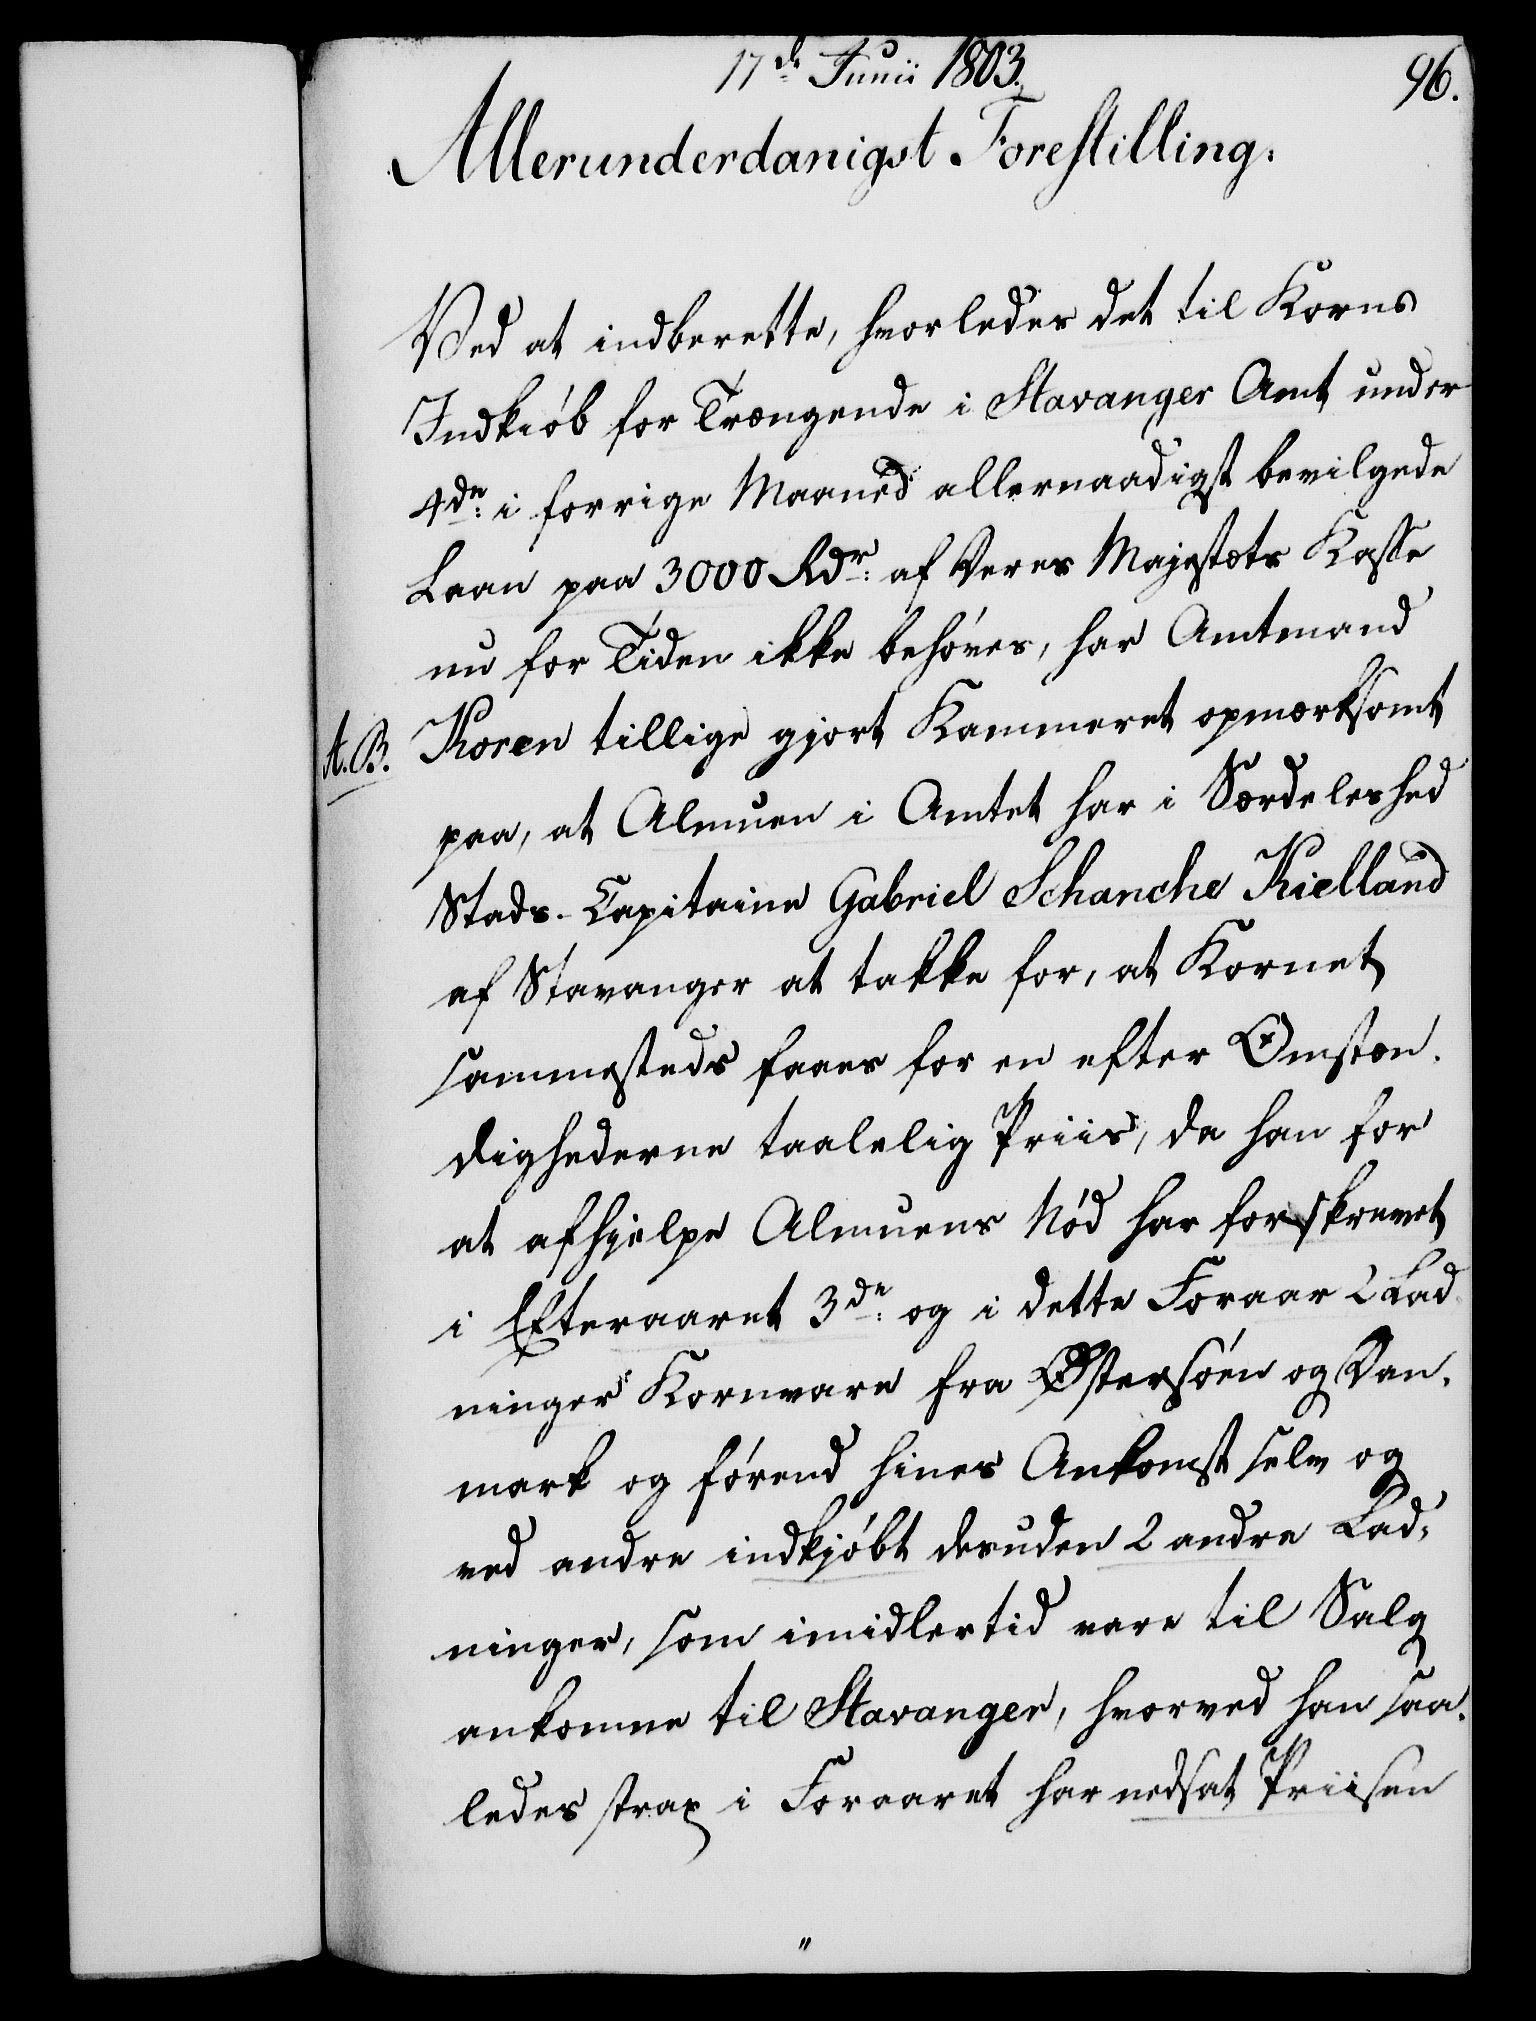 17de Junii 1803.
96.
Allerunderdanigst Forestilling.
Ved at indberette, hvorledes det til Korns
Indkiöb for Trængende i Stavanger Amt under
4de: i forrige Maaned allernaadigst bevilgede
Laan paa 3000 Rdr: af Deres Majestæts Kasse
nu for Tiden ikke behöves, har Amtmand
A. B. Koren tillige gjort Kammeret opmærksomt
paa, at Almuen i Amtet har i Særdeleshed
Stads-Capitaine Gabriel Schanche Kielland
af Stavanger at takke for, at Kornet
sammesteds faaes for en efter Omstæn-
dighederne taalelig Priis, da han for
at afhjelpe Almuens Nöd har forskrevet
i Efteraaret 3de: og i dette Foraar 2 Lad-
ninger Kornvare fra Östersöen og Dan-
mark og förend hines Ankomst selv og
ved andre indkjöbt desuden 2 andre Lad-
ninger, som imidlertid vare til Salg
ankomne til Stavanger, hvorved han saa-
ledes strax i Foraaret har nedsat Priisen
"